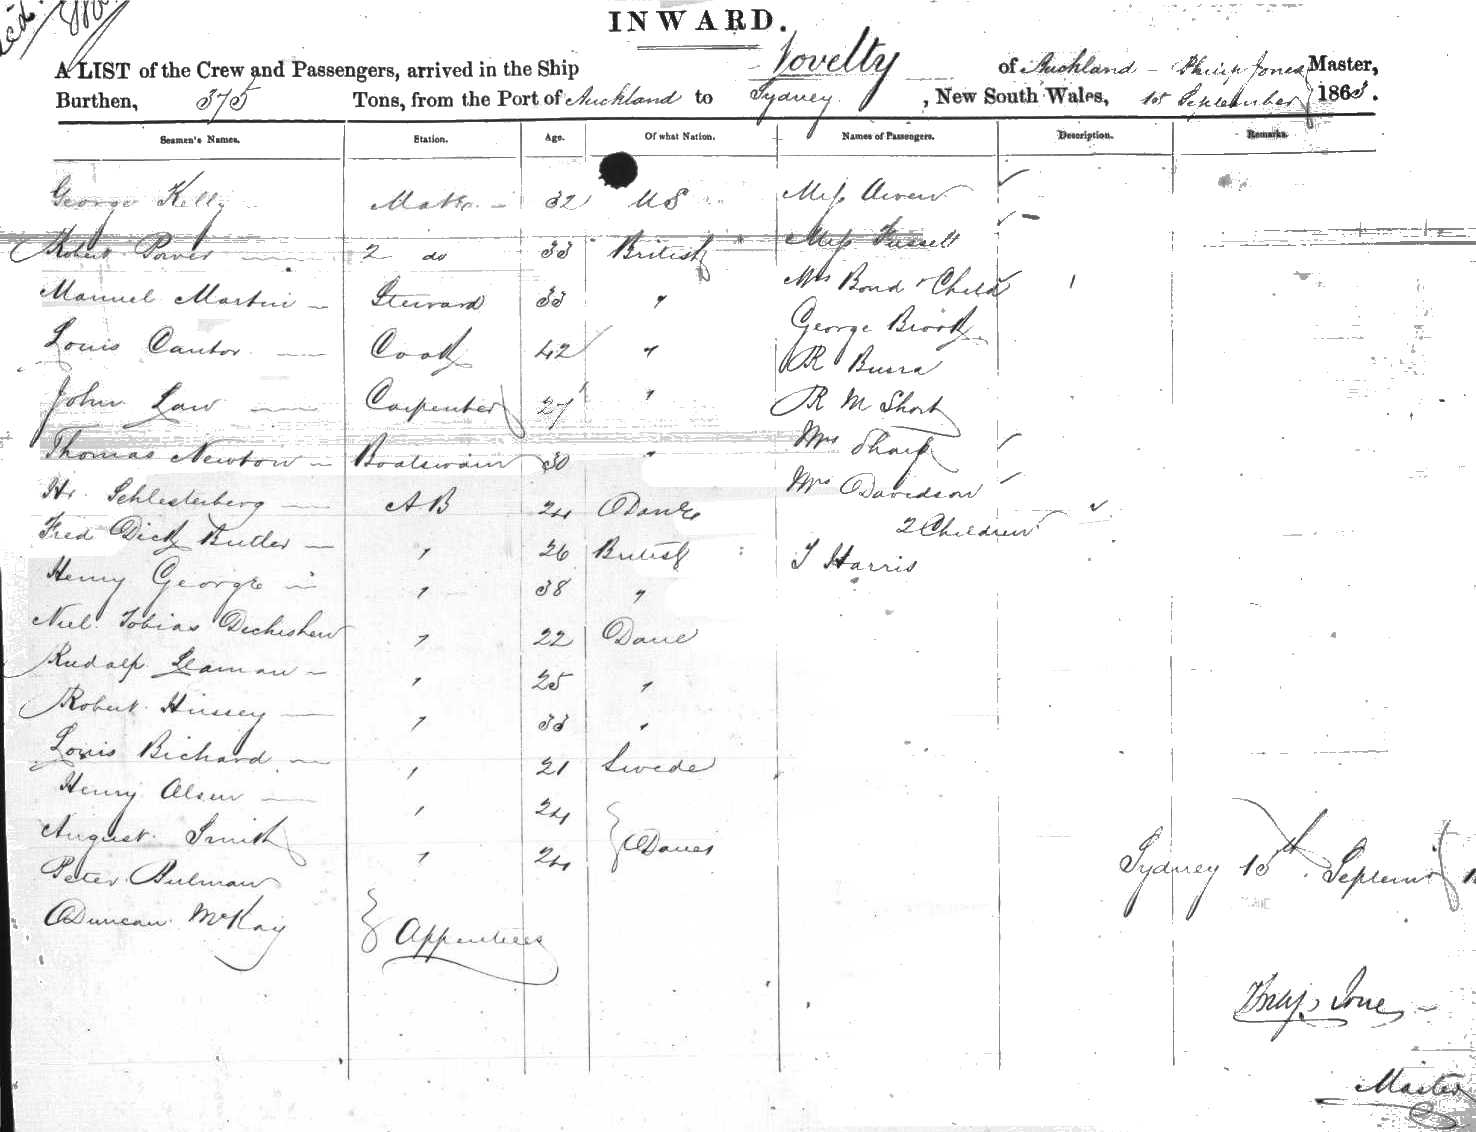 INWARD.
A LIST of the Crew and Passengers, arrived in the Ship Novelty of Auckland - Philip Jones Master,
Burthen, 375 Tons, from the Port of Auckland to Sydney, New South Wales, 1st September 1863.
Seamen's Names. Station. Age. Of what Nation. Names of Passengers. Description. Remarks.
George Kelly Mate 32 US Miss
Robert Power 2 do 33 British Miss Fussell
Manuel Martin Steward 33 " Mrs Bond & Child 1
Louis Cantor Cook 42 " George Brook
R Burra
John Law Carpenter 27 " R M Short
Thomas Newton Boatswain 30 " Mrs Sharp
Hr. Schlesterberg AB 24 Dane Mrs Davidson
2 Children
Fred Dick Butler " 26 British J Harris
Henry George " 38 "
Niel Tobias " 22 Dane
Rudolf Leaman " 25 "
Robert Hussey " 33 "
Louis Bichard " 21 Swede
Henry Olsen " 24
August Smith " 24 Danes
Peter Bulman
Duncan McKay Apprentices
Sydney 15th
Philip Jones
Master